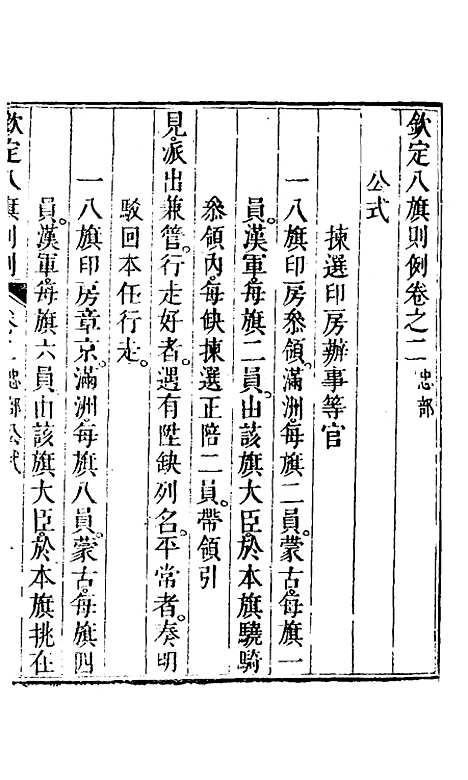 欽定八旗則例卷之二 忠部
公式
揀選印房辦事等官
一八旗印房叅領滿洲每旗二員。蒙古每旗一
員。漢軍每旗二員。由該旗大臣。於本旗驍騎
叅領內。每缺揀選正陪二員。帶領引
見。派出兼管。行走好者。遇有陞缺列名。平常者。奏明
駁回本任行走。
一八旗印房章京。滿洲每旗八員。蒙古每旗四
員。漢軍每旗六員。由該旗大臣。於本旗挑在
欽定八旗則例 卷二 忠部公式